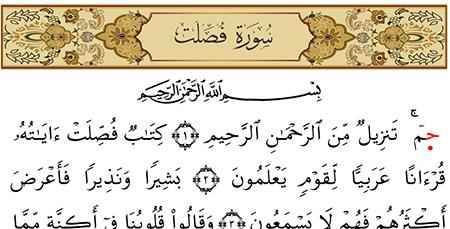 سُورَة فُصِّلَت
بِسْمِ ٱللَّهِ ٱلرَّحْمَٰنِ ٱلرَّحِيمِ
حمٓ ۚ تَنزِيلٌ مِّنَ ٱلرَّحْمَٰنِ ٱلرَّحِيمِ ﴿١﴾ كِتَٰبٌ فُصِّلَتْ ءَايَٰتُهُۥ
قُرْءَانًا عَرَبِيًّا لِّقَوْمٍ يَعْلَمُونَ ﴿٢﴾ بَشِيرًا وَنَذِيرًا فَأَعْرَضَ
أَكْثَرُهُمْ فَهُمْ لَا يَسْمَعُونَ ﴿٣﴾ وَقَالُوا۟ قُلُوبُنَا فِىٓ أَكِنَّةٍ مِّمَّا